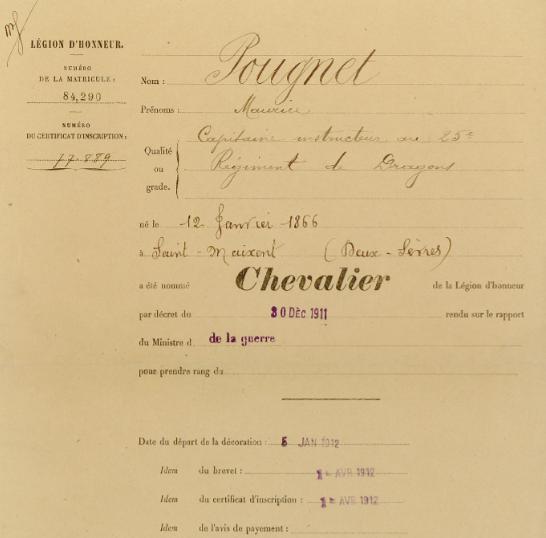 LÉGION D'HONNEUR.
NUMÉRO
DE LA MATRICULE :
84,290
NUMÉRO
DU CERTIFICAT D'INSCRIPTION :
77.889
Nom : Pougnet
Prénoms : Maurice
Qualité ou grade. Capitaine instructeur au 25e
Régiment de Dragons
né le 12 Janvier 1866
à Saint-Maixent (Deux-Sèvres)
a été nommé Chevalier de la Légion d'honneur
par décret du 30 DÉC 1911 rendu sur le rapport
du Ministre d de la guerre
pour prendre rang du
Date du départ de la décoration : 5 JAN 1912
Idem du brevet : AVR 1912
Idem du certificat d'inscription : AVR 1912
Idem de l'avis de payement :